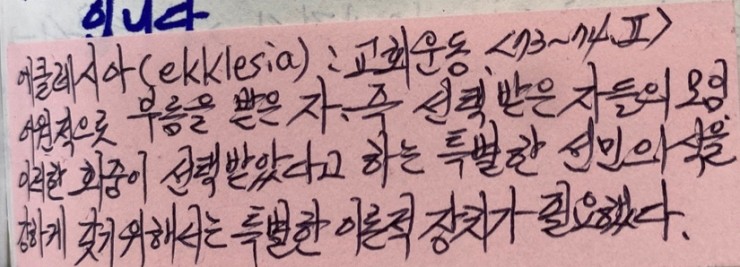 입니다
에클레시아(ekklesia) : 교회운동. <73~74, Ⅱ>
어원적으로 부름을 받은 자, 즉 선택 받은 자들의 모임
이러한 회중이 선택받았다고 하는 특별한 선민의식을
강하게 갖기 위해서는 특별한 이론적 장치가 필요했다.